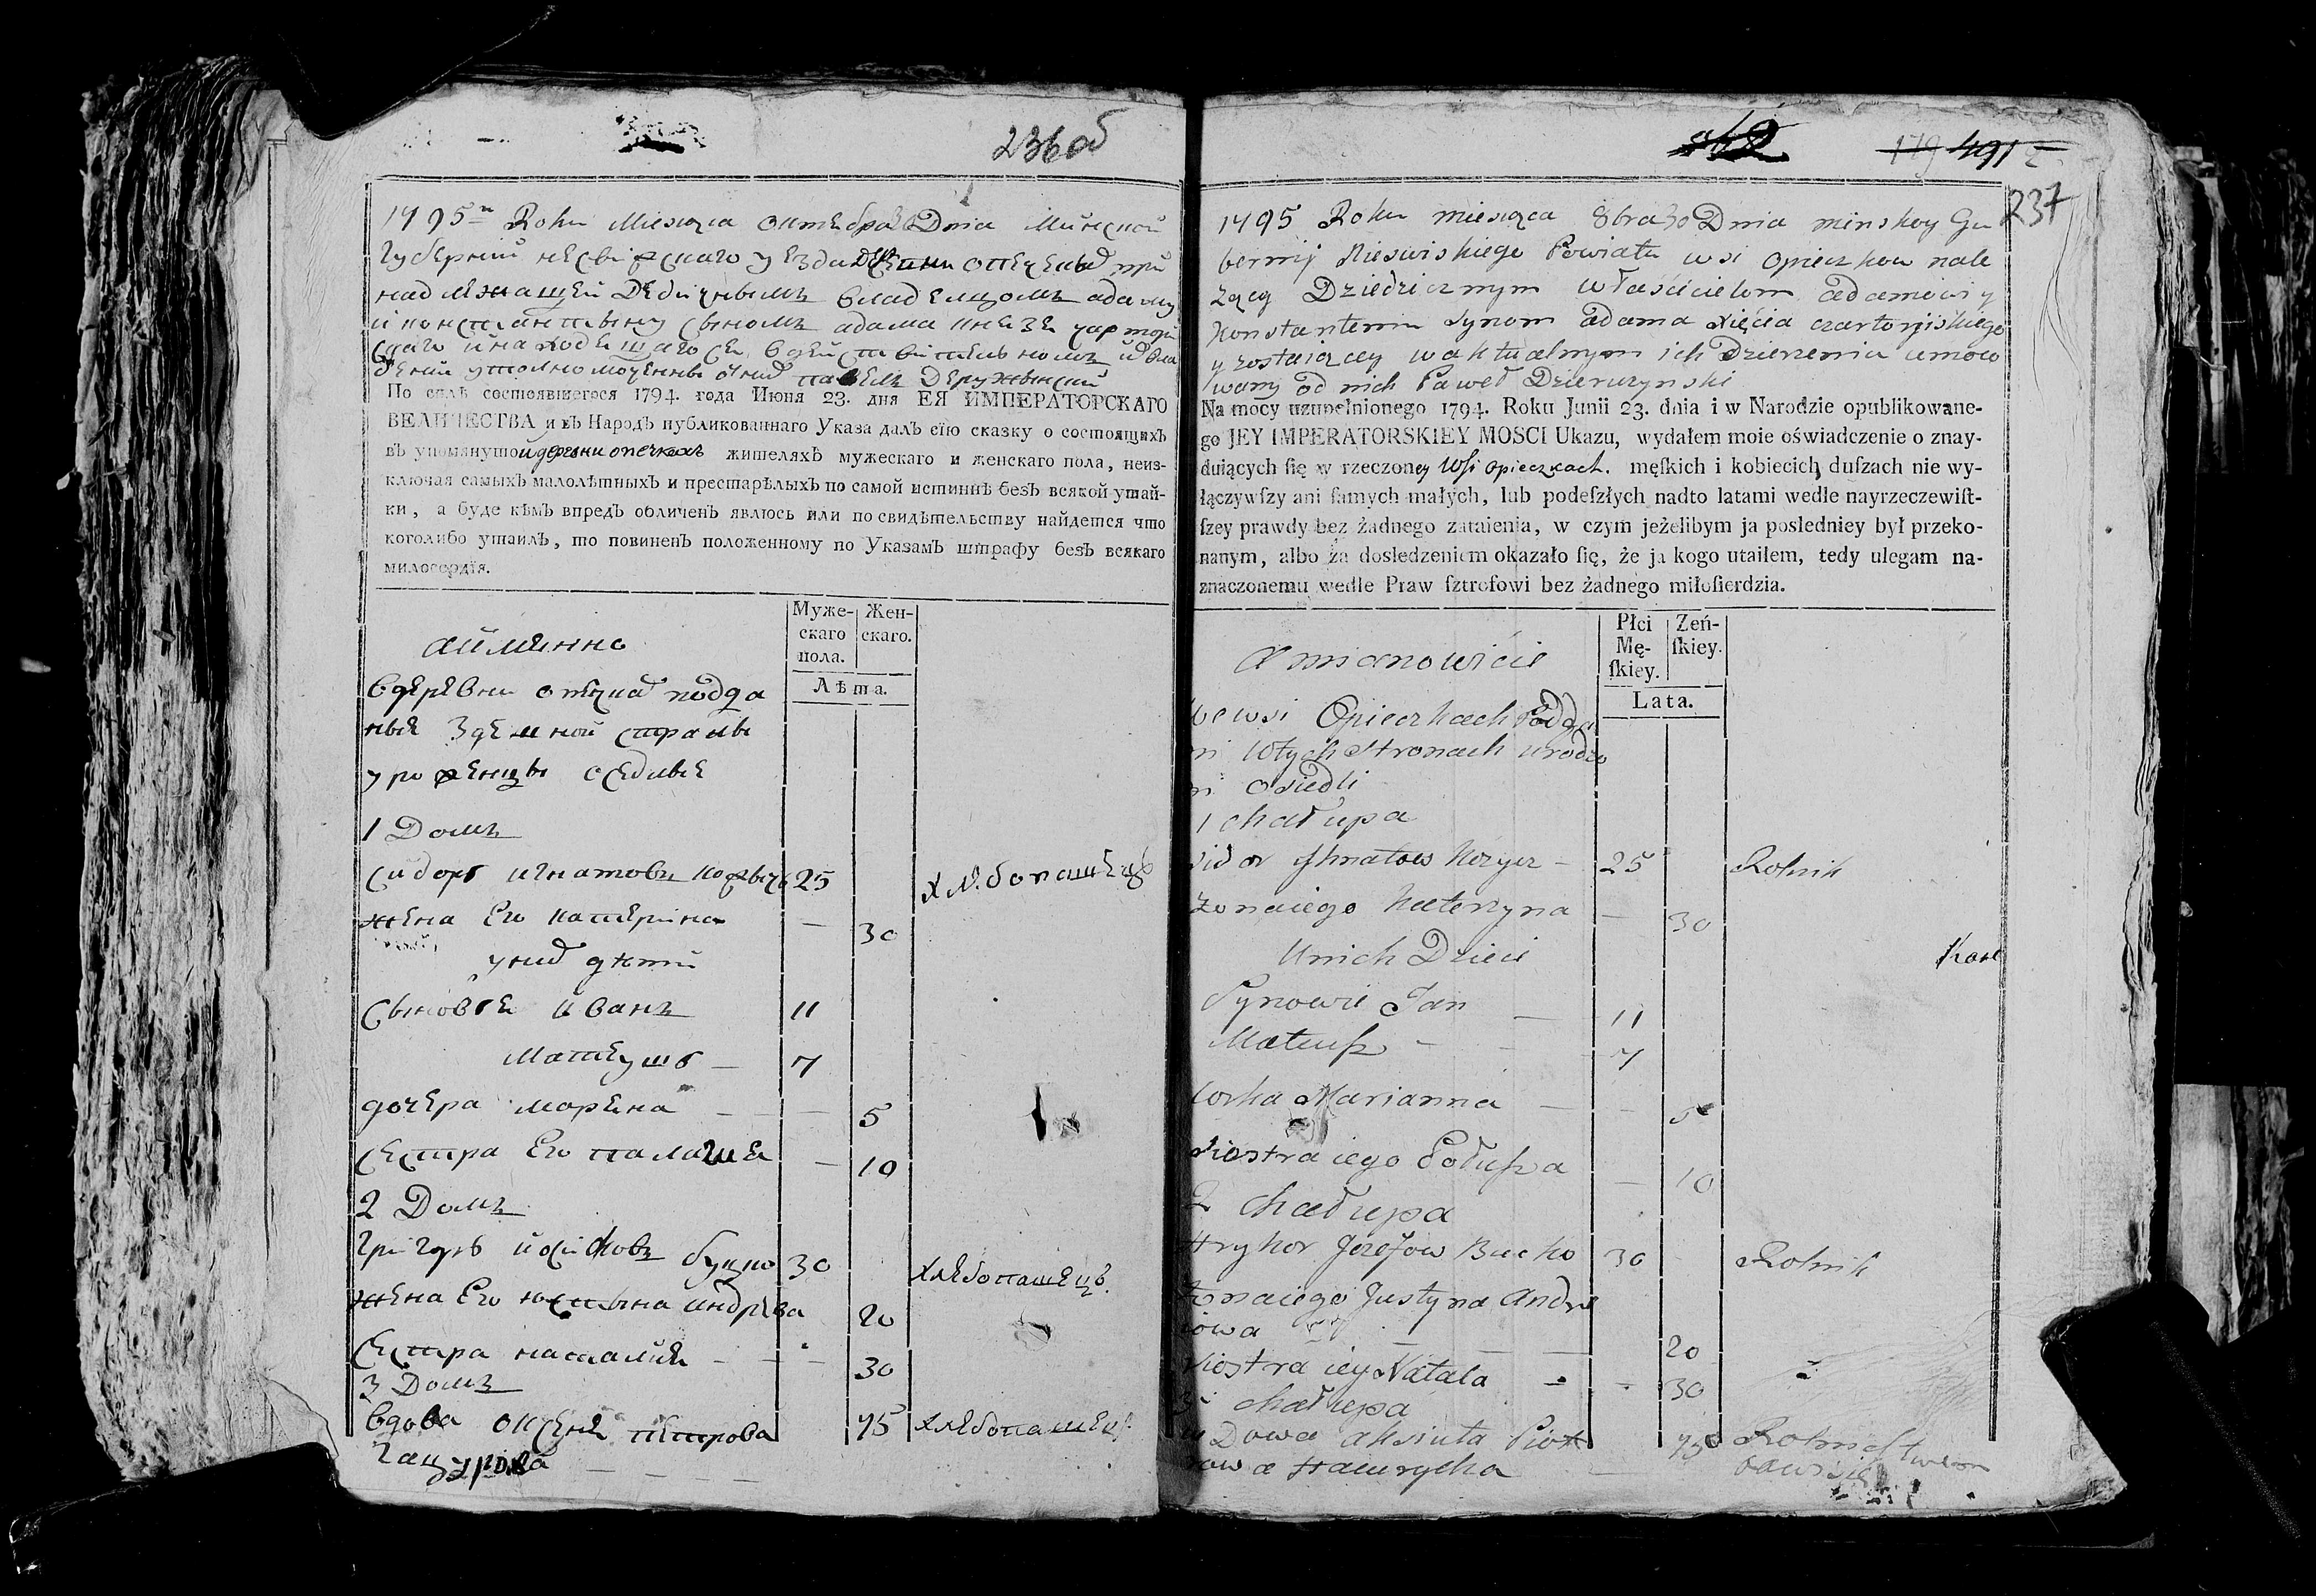 236 об
1795 Roku Miesiąca октебра Dnia Минской
губернии несвижскаго уезда деревни опечекъ при
надлежащей Дедичнымъ владельцомъ адаму
и константыну сыномъ адама кнезе чартори
скаго
дении уполномоченны о нихъ павелъ Держинский
По силѣ состоявшегося 1794. года Июня 23. дня ЕЯ ИМПЕРАТОРСКАГО
ВЕЛИЧЕСТВА и въ Народъ публикованнаго Указа далъ сїю сказку о состоящихъ
въ упомянутой деревни опечкахъ жителяхъ мужескаго и женскаго пола, неиз-
ключая самыхъ малолѣтныхъ и престарѣлыхъ по самой истиннѣ безъ всякой утай-
ки, а буде кѣмъ впредъ обличенъ явлюсь или по свидѣтельству найдется что
коголибо утаилъ, то повиненъ положенному по Указамъ штрафу безъ всякаго
милосердїя.
аименно
Муже-
скаго
пола.
Жен-
скаго.
Лѣта.
вдеревни опечках подда
ные здешной страны
уроженцы оседлые
1 Домъ
Сидоръ игнатовъ 25 хлебопашецъ
жена Его катерина — 30
у них дѣти
Сыновя иванъ 11
Матеушъ — 7
дочера марена — — — 5
сестра Его палагея — 10
2 Домъ
Григоръ иосифовъ буцко 30 хлебопашецъ.
жена Его юстына андрева 20
сестра наталия — — — 30
3 Домъ
вдова оксеня петрова 75 хлебопашец
— — — —
491
237
1795 Roku miesiąca 8bra 30 Dnia minskoy Gu
bernij Nieswiskiego Powiatu wsi opieczkow nale
żącey Dziedzicznym właścicielom adamowi y
Konstantemu synom adama xięcia czartoryiskiego
y zostaiącey w aktualnym ich Dzierzeniu umoco
wany od nich Paweł Dzierzynski
Na mocy uzupełnionego 1794. Roku Junii 23. dnia i w Narodzie opublikowane-
go JEY IMPERATORSKIEY MOSCI Ukazu, wydałem moie oświadczenie o znay-
duiących ſię w rzeczoney Wsi opieczkach. męſkich i kobiecich duſzach nie wy-
łączywſzy ani ſamych małych, lub podeſzłych nadto latami wedle nayrzeczewiſt-
ſzey prawdy bez żadnego zataienia, w czym jeżelibym ja posledniey był przeko-
nanym, albo za dosledzeniem okazało ſię, że ja kogo utailem, tedy ulegam na-
znaczonemu wedle Praw ſztrofowi bez żadnego miłoſierdzia.
a mianowicie
Płci
Mę-
ſkiey.
Zeń-
ſkiey.
Lata.
we wsi Opieczkach Podda
ni wtych stronach urodzo
ni osiedli
1 chałupa
Sidor Ihnatow — 25 Rolnik
Zona iego Katerzyna — 30
Unich Dzieci
Synowie Jan — 11
Mateuſz — — 7
Corka Marianna — — 5
Siostra iego Połuſza — 10
2 Chałupa
Hryhor Jozefow Bucko 30 Rolnik
Zona iego Justyna Andre
iowa — — 20
Siostra iey Natala — — 30
3 Chałupa
wDowa aksiuta Piot 75 Rolnictwem
rowa — bawi się